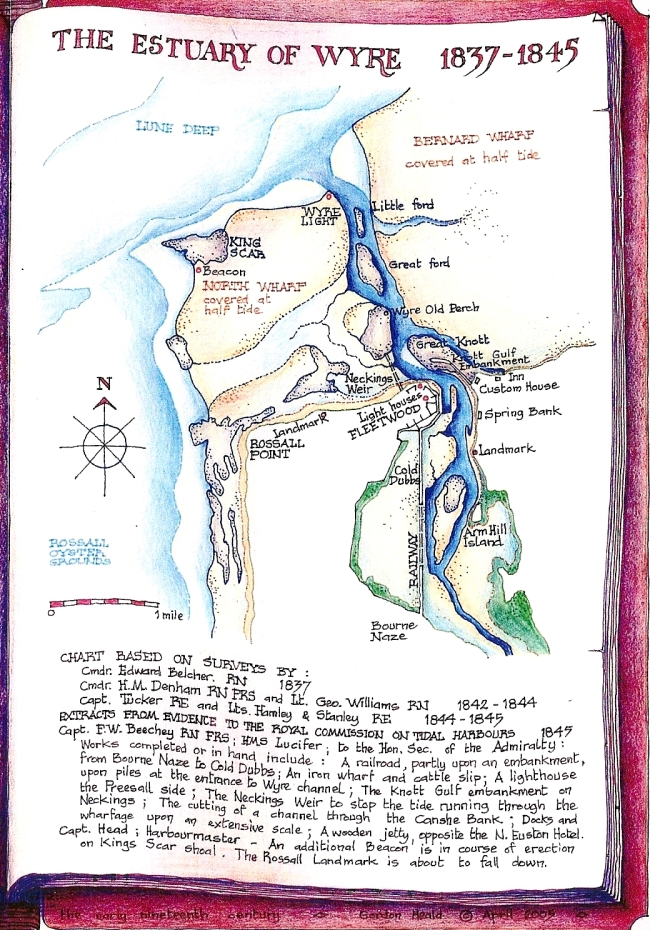 THE ESTUARY OF WYRE 1837-1845
LUNE DEEP
BERNARD WHARF
covered at half tide
Little ford
WYRE
LIGHT
KING
SCAR
Beacon
Great ford
NORTH WHARF
covered at
half tide
Wyre Old Perch
Great Knott
Knott Gulf
Embankment
Inn
Custom House
Neckings
Weir
Light houses
FLEETWOOD
Spring Bank
Landmark
ROSSALL
POINT
Landmark
Cold
Dubbs
N
ROSSALL
OYSTER
GROUNDS
Arm Hill
Island
RAILWAY
0 1 mile
Bourne
Naze
CHART BASED ON SURVEYS BY :
Cmdr. Edward Belcher. RN 1837
Cmdr. H.M. Denham RN FRS and Lt. Geo. Williams RN 1842-1844
Capt. Tucker RE and Lts. Hamley & Stanley RE 1844-1845
EXTRACTS FROM EVIDENCE TO THE ROYAL COMMISSION ON TIDAL HARBOURS 1845
Capt. F.W. Beechey RN FRS; HMS Lucifer; to the Hon. Sec. of the Admiralty:
Works completed or in hand include : A railroad, partly upon an embankment,
from Bourne Naze to Cold Dubbs; An iron wharf and cattle slip; A lighthouse
upon piles at the entrance to Wyre channel; The Knott Gulf embankment on
the Preesall side; The Neckings Weir to stop the tide running through the
Neckings; The cutting of a channel through the Canshe Bank; Docks and
wharfage upon an extensive scale; A wooden jetty, opposite the N. Euston Hotel.
Capt. Head; Harbourmaster - An additional Beacon is in course of erection
on Kings Scar shoal. The Rossall Landmark is about to fall down.
the early nineteenth century Gordon Heald © April 2005